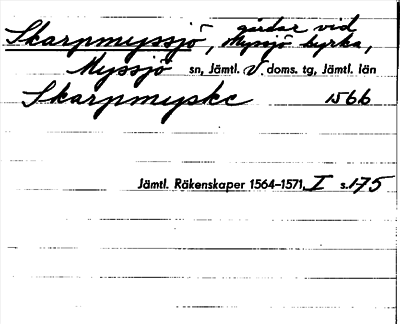 Skarpmyssjö, gårdar vid
Myssjö kyrka,
Myssjö sn, Jämtl. V. doms. tg, Jämtl. län
Skarpmyske 1566
Jämtl. Räkenskaper 1564–1571, I s. 175